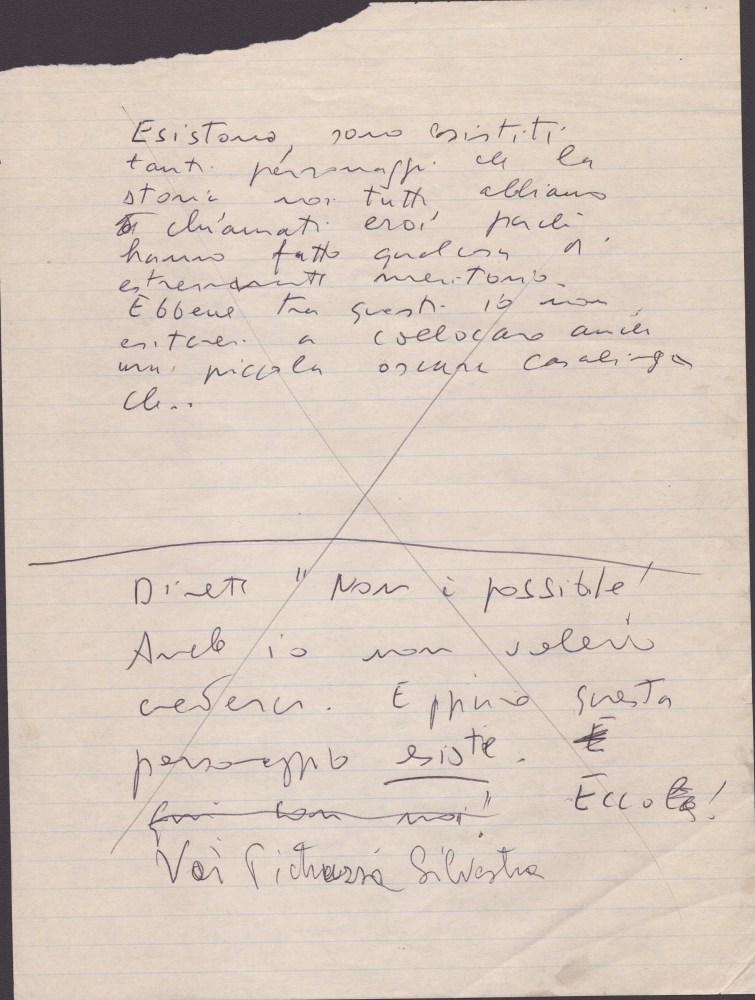 Esistono, sono esistiti
tanti personaggi che la
storia noi tutti abbiamo
chiamati eroi perché
hanno fatto qualcosa di
estremamente meritorio.
Ebbene tra questi io non
esiterei a collocare anche
una piccola oscura casalinga
che...
Direte "Non è possibile!
Anche io non volevo
crederci. Eppure questo
personaggio esiste. È
qui con noi" Eccola!
Silvestra